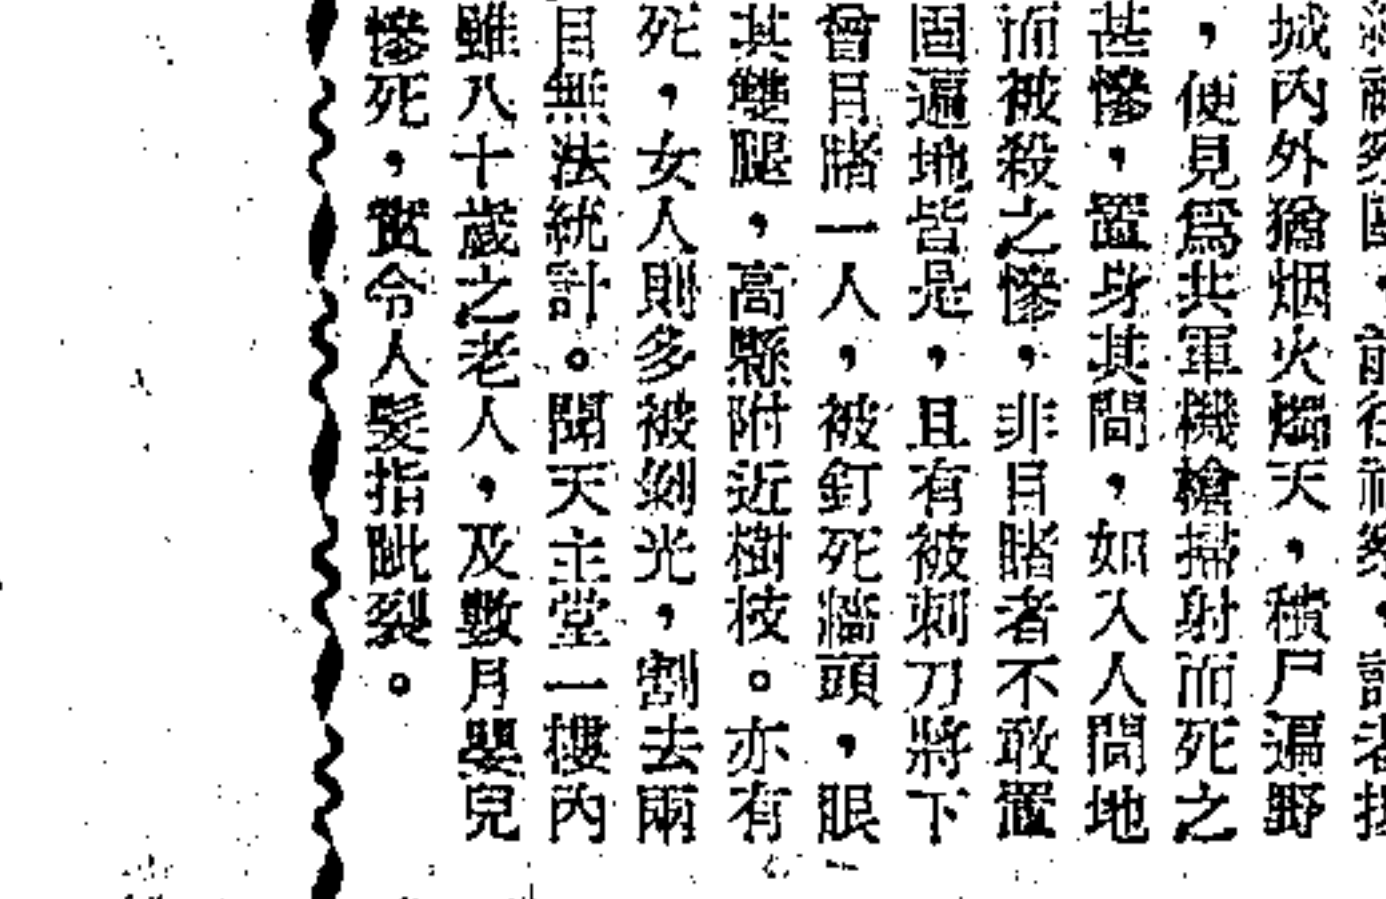 城內外猶烟火燭天，積尸遍野
，便見爲共軍機槍掃射而死之
甚慘，置身其間，如入人間地
而被殺之慘，非目睹者不敢置
固遍地皆是，且有被刺刀將下
曾目睹一人，被釘死牆頭，眼
其雙腿，高縣附近樹枝。亦有
死，女人則多被剝光，割去兩
目無法統計。聞天主堂一樓內
雖八十歲之老人，及數月嬰兒
慘死，實令人髮指眦裂。